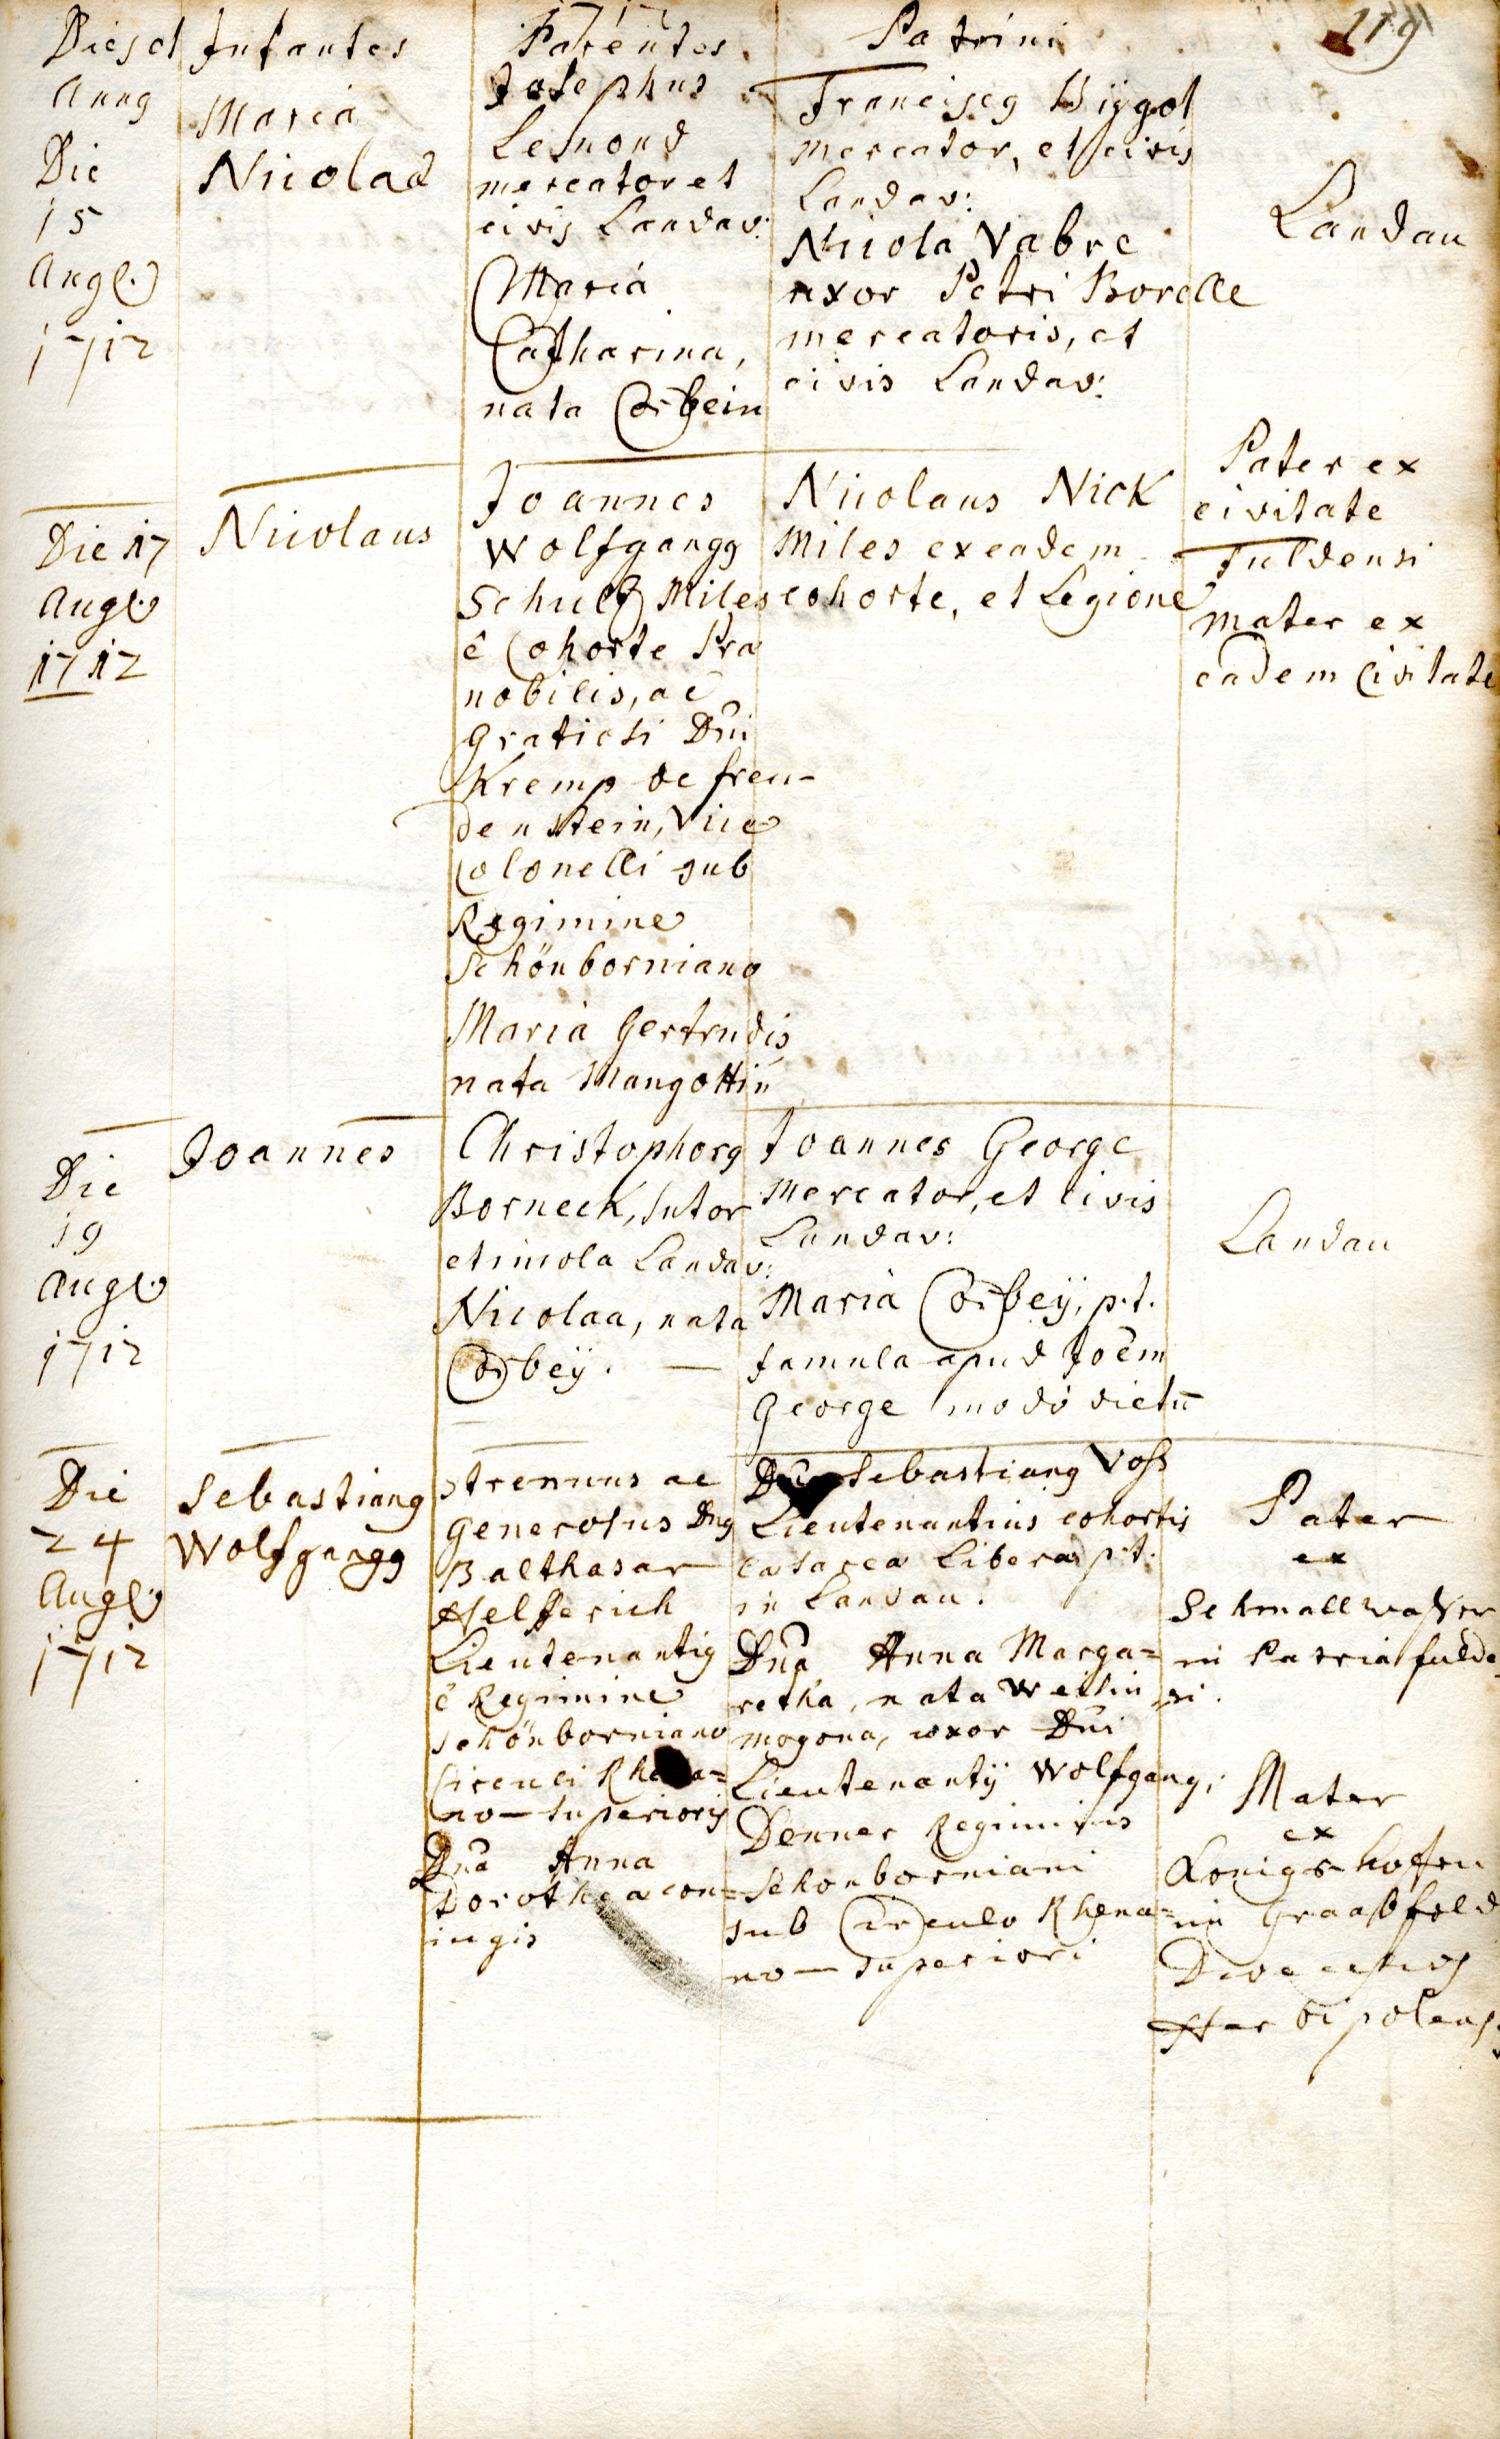 119
Dies et
Anng
Infantes
Parentes
Patrini
Die
15
Augl.
1712
Maria
Nicolaa
Josephus
Lemond
mercator et
civis Landav:
Maria
Catharina,
nata Corbein
mercator, et civis
Landav:
Nicola Vabre
uxor Petri Borelle
mercatoris, et
civis Landav:
Landau
Die 17
Augl.
1712
Nicolaus
Joannes
Wolfgangg
Schultz Miles
è Cohorte Præ
nobilis, ac
Gratiosi Dni
Kremp de freu-
denstein, Vice
Colonelli sub
Regimine
Schönborniano
Maria Gertrudis
nata Mangottin
Nicolaus Nick
Miles ex eadem
cohorte, et Legione
Pater ex
civitate
Fuldensi
Mater ex
eadem Civitate
Die
19
Augl.
1712
Joannes
Christophorg
Borneck, sutor
et incola Landav:
Nicolaa, nata
Corbeÿ. —
Joannes George
Mercator, et civis
Landav:
Maria Corbeÿ, p.t.
famula apud Joem
George modò dictū
Landau
Die
24
Augl.
1712
Sebastiang
Wolfgangg
Strenuus ac
Generosus Dng
Balthasar
Helfferich
Lieutenantig
è Regimine
Schönborniano
Circuli Rhena=
no-superioris
Dna Anna
Dorothea con=
iugis
Sebastiang Voss
Lieutenantius cohortis
Cæsareæ Liberæ p.t.
in Landau.
Dna Anna Marga=
retha, nata
mogona, uxor Dni
Lieutenantij Wolfgangi
Denner Regiminis
Schonborniani
sub Circulo Rhena=
no-superiori
Pater
ex
Schmallwasser
in Patria fulde
si.
Mater
ex
Konigshofen
in Graabfeld
Herbipolens: